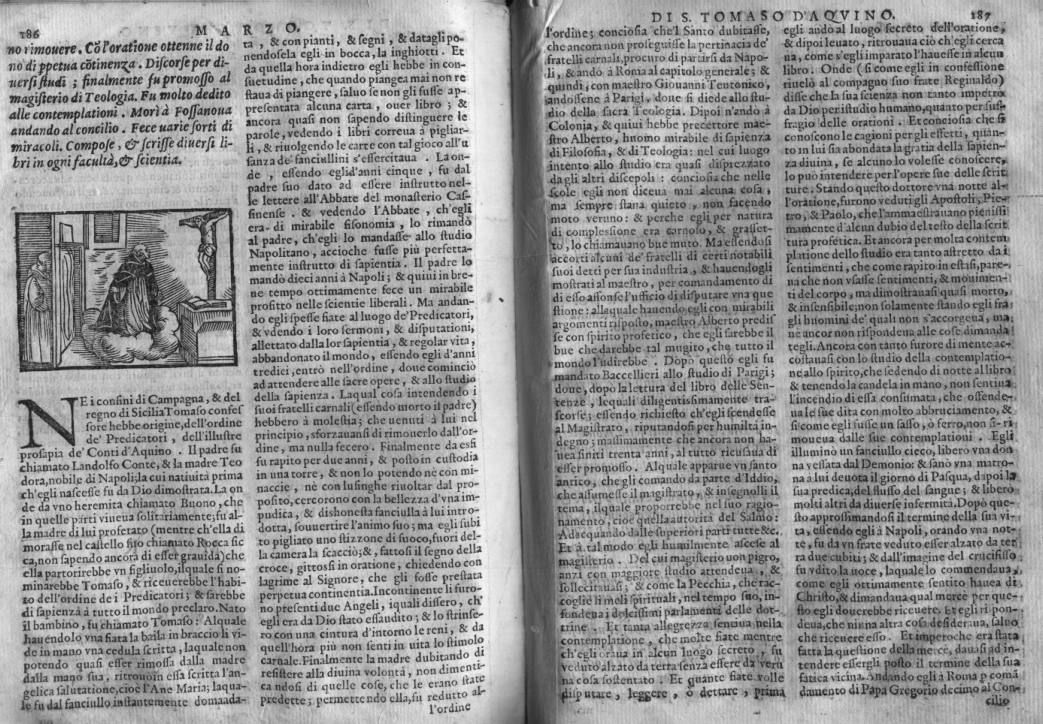 186
MARZO.
no rimouere. Cō l'oratione ottenne il do
no di ppetua cōtinenza. Discorse per di-
uersi studi ; finalmente fu promosso al
magisterio di Teologia. Fu molto dedito
alle contemplationi. Morì à Fossanoua
andando al concilio. Fece uarie sorti di
miracoli. Compose, & scrisse diuersi li-
bri in ogni facultà, & scientia.
NE i confini di Campagna, & del
regno di Sicilia Tomaso confes
sore hebbe origine, dell'ordine
de' Predicatori, dell'illustre
prosapia de' Conti d'Aquino. Il padre fu
chiamato Landolfo Conte, & la madre Teo
dora, nobile di Napoli; la cui natiuità prima
ch'egli nascesse fu da Dio dimostrata. La on
de da vno heremita chiamato Buono, che
in quelle parti viueua solitariamente; fu al-
la madre di lui profetato (mentre ch'ella di
morasse nel castello suo chiamato Rocca sic
ca, non sapendo ancora di esser grauida) che
ella partorirebbe vn figliuolo, ilquale si no-
minarebbe Tomaso, & riceuerebbe l'habi-
to dell'ordine de i Predicatori; & sarebbe
di sapienza à tutto il mondo preclaro. Nato
il bambino, fu chiamato Tomaso: Alquale
hauendolo vna fiata la baila in braccio li vi-
de in mano vna cedula scritta, laquale non
potendo quasi esser rimossa dalla madre
dalla mano sua, ritrouò in essa scritta l'an-
gelica salutatione, cioè l'Aue Maria; laqua-
le fu dal fanciullo instantemente domaada-
ta, & con pianti, & segni, & datagli po-
nendosela egli in bocca, la inghiottì. Et
da quella hora indietro egli hebbe in con-
suetudine, che quando piangea mai non re
staua di piangere, saluo se non gli fusse ap-
presentata alcuna carta, ouer libro; &
ancora quasi non sapendo distinguere le
parole, vedendo i libri correua à pigliar-
li, & riuolgendo le carte con tal gioco all'u
sanza de' fanciullini s'essercitaua. La on-
de, essendo egli d'anni cinque, fu dal
padre suo dato ad essere instrutto nel-
le lettere all'Abbate del monasterio Cas-
sinense. & vedendo l'Abbate, ch'egli
era di mirabile fisonomia, lo rimandò
al padre, ch'egli lo mandasse allo studio
Napolitano, accioche fusse più perfetta-
mente instrutto di sapientia. Il padre lo
mandò dieci anni à Napoli; & quiui in bre-
ne tempo ottimamente fece un mirabile
profitto nelle scientie liberali. Ma andan-
do egli spesse fiate al luogo de' Predicatori,
& vdendo i loro sermoni, & disputationi,
allettato dalla lor sapientia, & regolar vita,
abbandonato il mondo, essendo egli d'anni
tredici, entrò nell'ordine, doue cominciò
ad attendere alle sacre opere, & allo studio
della sapienza. Laqual cosa intendendo i
suoi fratelli carnali (essendo morto il padre)
hebbero à molestia; che uenuti à lui nel
principio, sforzauansi di rimouerlo dall'or-
dine, ma nulla fecero. Finalmente da essi
fu rapito per due anni, & posto in custodia
in una torre, & non lo potendo nè con mi-
naccie, nè con lusinghe riuoltar dal pro-
posito, cercorono con la bellezza d'vna im-
pudica, & dishonesta fanciulla à lui intro-
dotta, souuertire l'animo suo; ma egli subi
to pigliato uno stizzone di fuoco, fuori del-
la camera la scacciò; &, fattosi il segno della
croce, gittossi in oratione, chiedendo con
lagrime al Signore, che gli fosse prestata
perpetua continentia. Incontinente li furo-
no presenti due Angeli, iquali dissero, ch'
egli era da Dio stato essaudito; & lo strinse-
ro con una cintura d'intorno le reni, & da
quell'hora più non sentì in uita lo stimolo
carnale. Finalmente la madre dubitando di
resistere alla diuina volontà, non dimenti-
ca ndosi di quelle cose, che le erano state
predette; permettendo ella, fu redutto al-
l'ordine
DI S. TOMASO D'AQVINO.
187
l'ordine; conciosia che'l Santo dubitasse,
che ancora non proseguisse la pertinacia de'
fratelli carnali, procurò di partirsi da Napo-
li, & andò à Roma al capitolo generale; &
quindi, con maestro Giouanni Teutonico,
andossene à Parigi, doue si diede allo stu-
dio della sacra Teologia. Dipoi n'andò à
Colonia, & quiui hebbe precettore mae-
stro Alberto, huomo mirabile di sapienza
di Filosofia, & di Teologia: nel cui luogo
intento allo studio era quasi disprezzato
dagli altri discepoli: conciosia che nelle
scole egli non diceua mai alcuna cosa,
ma sempre staua quieto, non facendo
moto veruno: & perche egli per natura
di complessione era carnoso, & grasset-
to, lo chiamauano bue muto. Ma essendosi
accorti alcuni de' fratelli di certi notabili
suoi detti per sua industria, & hauendogli
mostrati al maestro, per comandamento di
di esso assonse l'ufficio di disputare vna que
stione: alla quale hauendo egli con mirabili
argomenti risposto, maestro Alberto predis
se con spirito profetico, che egli sarebbe il
bue che darebbe tal mugito, che tutto il
mondo l'udirebbe. Dopò questo egli fu
mandato Baccellieri allo studio di Parigi;
doue, dopò la lettura del libro delle Sen-
tenze, lequali diligentissimamente tra-
scorse; essendo richiesto ch'egli scendesse
al Magistrato, riputandosi per humiltà in-
degno; massimamente che ancora non ha-
uea finiti trenta anni, al tutto ricusaua di
esser promosso. Al quale apparue vn santo
antico, che gli comandò da parte d'Iddio,
che assumesse il magistrato, & insegnolli il
tema, ilquale proporrebbe nel suo ragio-
namento, cioè quella autorità del Salmo:
Adacquando dalle superiori parti tutte &c.
Et à tal modo egli humilmente ascese al
magisterio. Del cui magisterio non pigro,
anzi con maggiore studio attendeua, &
sollecitaua; & come la Pecchia, che rac-
coglie li meli spirituali, nel tempo suo, in-
fondeua i dolcissimi parlamenti delle dot-
trine. Et tanta allegrezza sentiua nella
contemplatione, che molte fiate mentre
ch'egli oraua in alcun luogo secreto, fu
veduto alzato da terra senza essere da veru
na cosa sostentato. Et quante fiate volle
disputare, leggere, o dettare, prima
egli andò al luogo secreto dell'oratione,
& dipoi leuato, ritrouaua ciò ch'egli cerca
ua, come s'egli imparato l'hauesse in alcun
libro. Onde (si come egli in confessione
riuelò al compagno suo frate Reginaldo)
disse che la sua scienza non tanto impetrò
da Dio per istudio humano, quanto per suf-
fragio delle orationi. Et conciosia che si
conoscono le cagioni per gli effetti, quan-
to in lui sia abondata la gratia della sapien-
za diuina, se alcuno lo volesse conoscere,
lo può intendere per l'opere sue delle scrit-
ture: Stando questo dottore vna notte al-
l'oratione, furono veduti gli Apostoli, Pie-
tro, & Paolo, che l'ammaestrauano pienissi
mamente d'alcun dubio del testo della scrit
tura profetica. Et ancora per molta contem
platione dello studio era tanto astretto da i
sentimenti, che come rapito in estasi, pare-
na che non vsasse sentimenti, & mouimen-
ti del corpo, ma dimostrauasi quasi morto,
& insensibile; non solamente stando egli fra
gli huomini de' quali non s'accorgeua, ma
ne ancor non rispondeua alle cose dimanda
tegli. Ancora con tanto furore di mente ac-
costauasi con lo studio della contemplatio-
ne allo spirito, che sedendo di notte al libro
& tenendo la candela in mano, non sentiua
l'incendio di essa consumata, che offende-
ua le sue dita con molto abbruciamento, &
si come egli fusse un sasso, ò ferro, non si ri-
moueua dalle sue contemplationi. Egli
illuminò un fanciullo cieco, liberò vna don
na vessata dal Demonio: & sanò vna matro-
na à lui deuota il giorno di Pasqua, dapoi la
sua predica, del flusso del sangue; & liberò
molti altri da diuerse infermità. Dopò que-
sto approssimandosi il termine della sua vi-
ta, essendo egli à Napoli, orando vna not-
te, fu da vn frate veduto esser alzato da ter
ra due cubiti; & dall'imagine del crucifisso
fu vdita la uoce, laquale lo commendaua,
come egli ottimamente sentito hauea di
Christo, & dimandaua qual merce per que-
sto egli douerebbe riceuere. Et egli rispon-
deua, che niuna altra cosa desideraua, saluo
che riceuere esso. Et imperoche era stata
fatta la questione della merce, dauasi ad in-
tendere essergli posto il termine della sua
fatica vicina. Andando egli à Roma p comā
damento di Papa Gregorio decimo al Con-
cilio